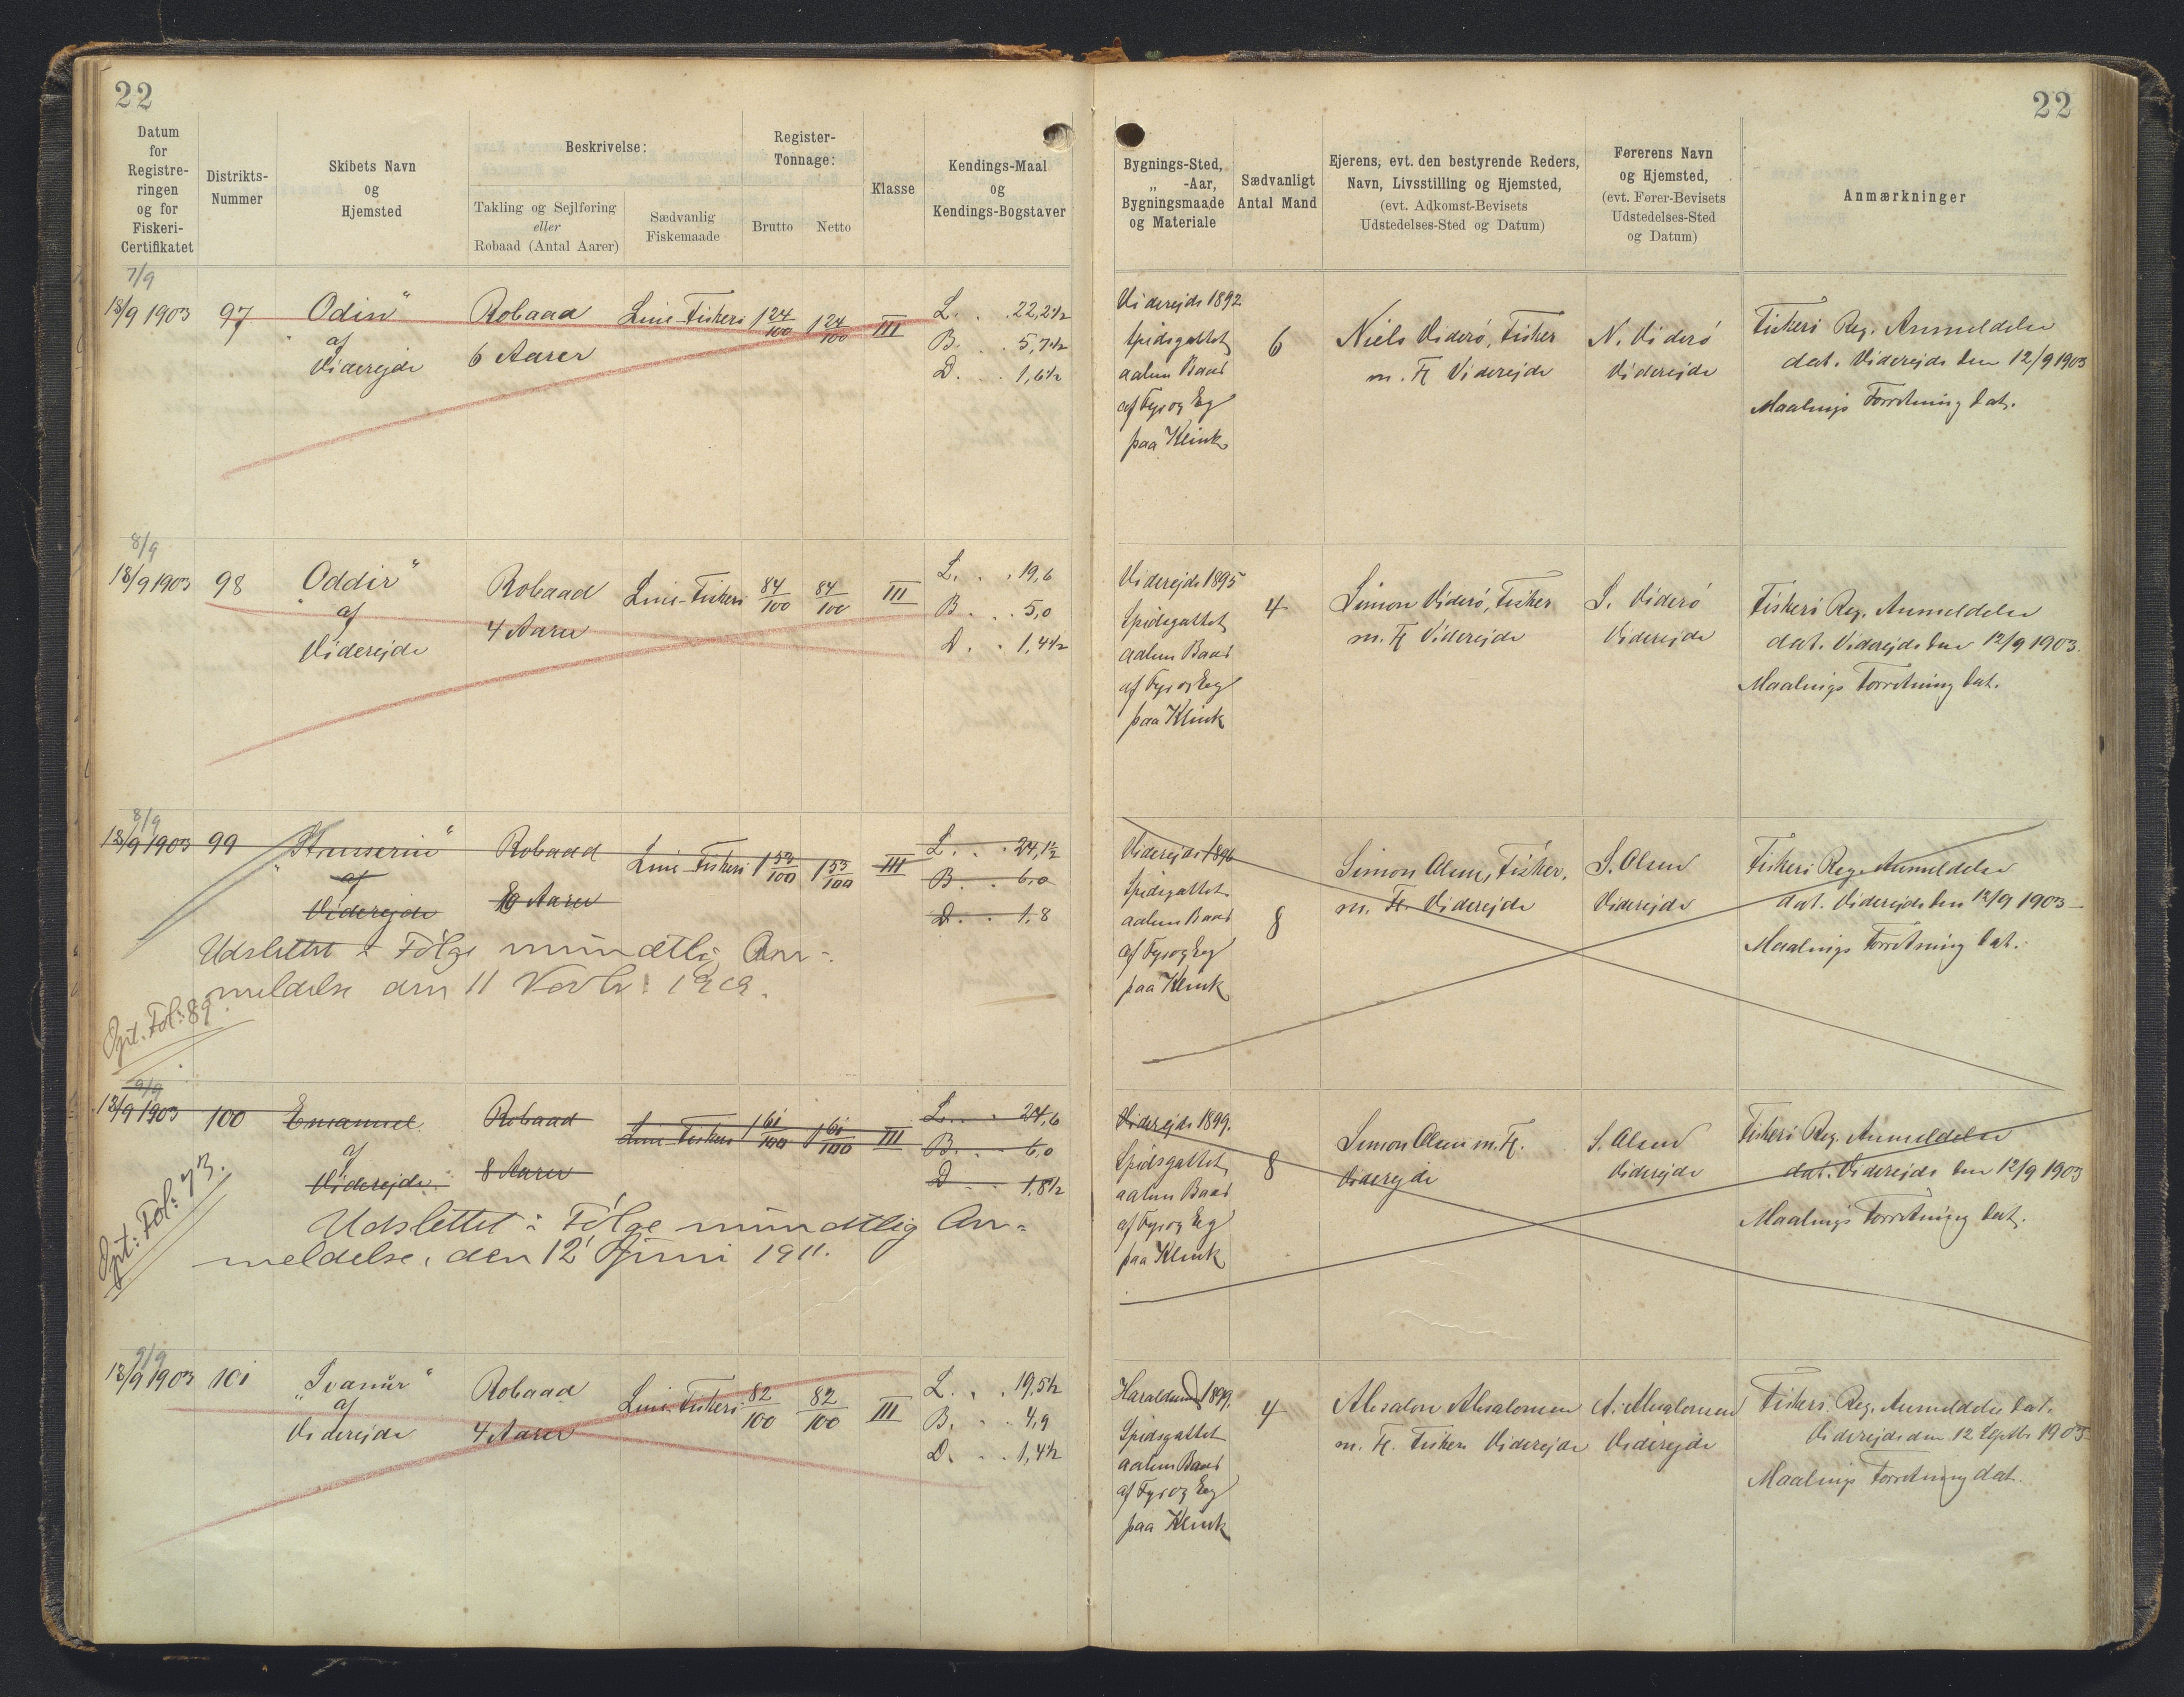 22
22
Datum
for
Registre-
ringen
og for
Fiskeri-
Certifikatet
Distrikts-
Nummer
Skibets Navn
og
Hjemsted
Beskrivelse:
Takling og Sejlføring
eller
Robaad (Antal Aarer)
Sædvanlig
Fiskemaade
Register-
Tonnage:
Brutto
Netto
Klasse
Kendings-Maal
og
Kendings-Bogstaver
Bygnings-Sted,
„ -Aar,
Bygningsmaade
og Materiale
Sædvanligt
Antal Mand
Ejerens, evt. den bestyrende Reders,
Navn, Livsstilling og Hjemsted,
(evt. Adkomst-Bevisets
Udstedelses-Sted og Datum)
Førerens Navn
og Hjemsted,
(evt. Fører-Bevisets
Udstedelses-Sted
og Datum)
Anmærkninger
7/9
18/9 1903
97
„Odin“
af
Viderejde
Robaad
6 Aarer
Line-Fiskeri
1 24/100
1 24/100
III
L. . . 22,2½
B. . . 5,7½
D. . . 1,6½
Viderejde 1892
Spidsgattet
aaben Baad
af Fyr og Eg
paa Klink
6
Niels Viderö, Fisker
m. Fl. Viderejde
N. Viderö
Viderejde
Fiskeri Reg. Anmeldelse
dat. Viderejde den 12/9 1903
Maalings Forretning dat.
8/9
18/9 1903
98
„Oddir“
af
Viderejde
Robaad
4 Aarer
Line-Fiskeri
84/100
84/100
III
L. . . 19,6
B. . . 5,0
D. . . 1,4½
Viderejde 1895
Spidsgattet
aaben Baad
af Fyr og Eeg
paa Klink
4
Simon Viderö, Fisker
m. Fl. Viderejde
S. Viderö
Viderejde
Fiskeri Reg. Anmeldelse
dat. Viderejde den 12/9 1903.
Maalings Forretning dat.
8/9
18/9 1903
99
af
Viderejde
Robaad
Aarer
Line-Fiskeri
1 53/100
1 53/100
III
L. . . 24,1½
B. . . 6,0
D. . . 1,8
Udslettet i Følge mundtlig An-
meldelse den 11 Novbr. 1909.
Gjt. Fol: 89.
Viderejde 1896
Spidsgattet
aaben Baad
af Fyr og Eeg
paa Klink
8
Simon Olsen, Fisker,
m. Fl. Viderejde
S. Olsen
Viderejde
Fiskeri Reg. Anmeldelse
dat. Viderejde den 12/9 1903
Maalings Forretning dat.
9/9
18/9 1903
100
Emanuel
af
Viderejde
Robaad
8 Aarer
Line-Fiskeri
1 61/100
1 61/100
III
L. . . 24,6
B. . . 6,0
D. . . 1,8½
Udslettet i Følge mundtlig An-
meldelse, den 12' Juni 1911.
Gjt: Fol: 73.
Viderejde 1899.
Spidsgattet
aaben Baad
af Fyr og Eg
paa Klink
8
Simon Olsen m. Fl.
Viderejde
S. Olsen
Viderejde
Fiskeri Reg. Anmeldelse
dat. Viderejde den 12/9 1903
Maalings Forretning dat.
9/9
18/9 1903
101
„Svanur“
af
Viderejde
Robaad
4 Aarer
Line-Fiskeri
82/100
82/100
III
L. . . 19,5½
B. . . 4,9
D. . . 1,4½
Haraldsund 1899.
Spidsgattet
aaben Baad
af Fyr og Eeg
paa Klink
4
Absalon Absalonsen
m. Fl. Fiskere Viderejde
A. Absalonsen
Viderejde
Fiskeri Reg. Anmeldelse dat.
Viderejde den 12 Septbr 1903
Maalings Forretning dat.